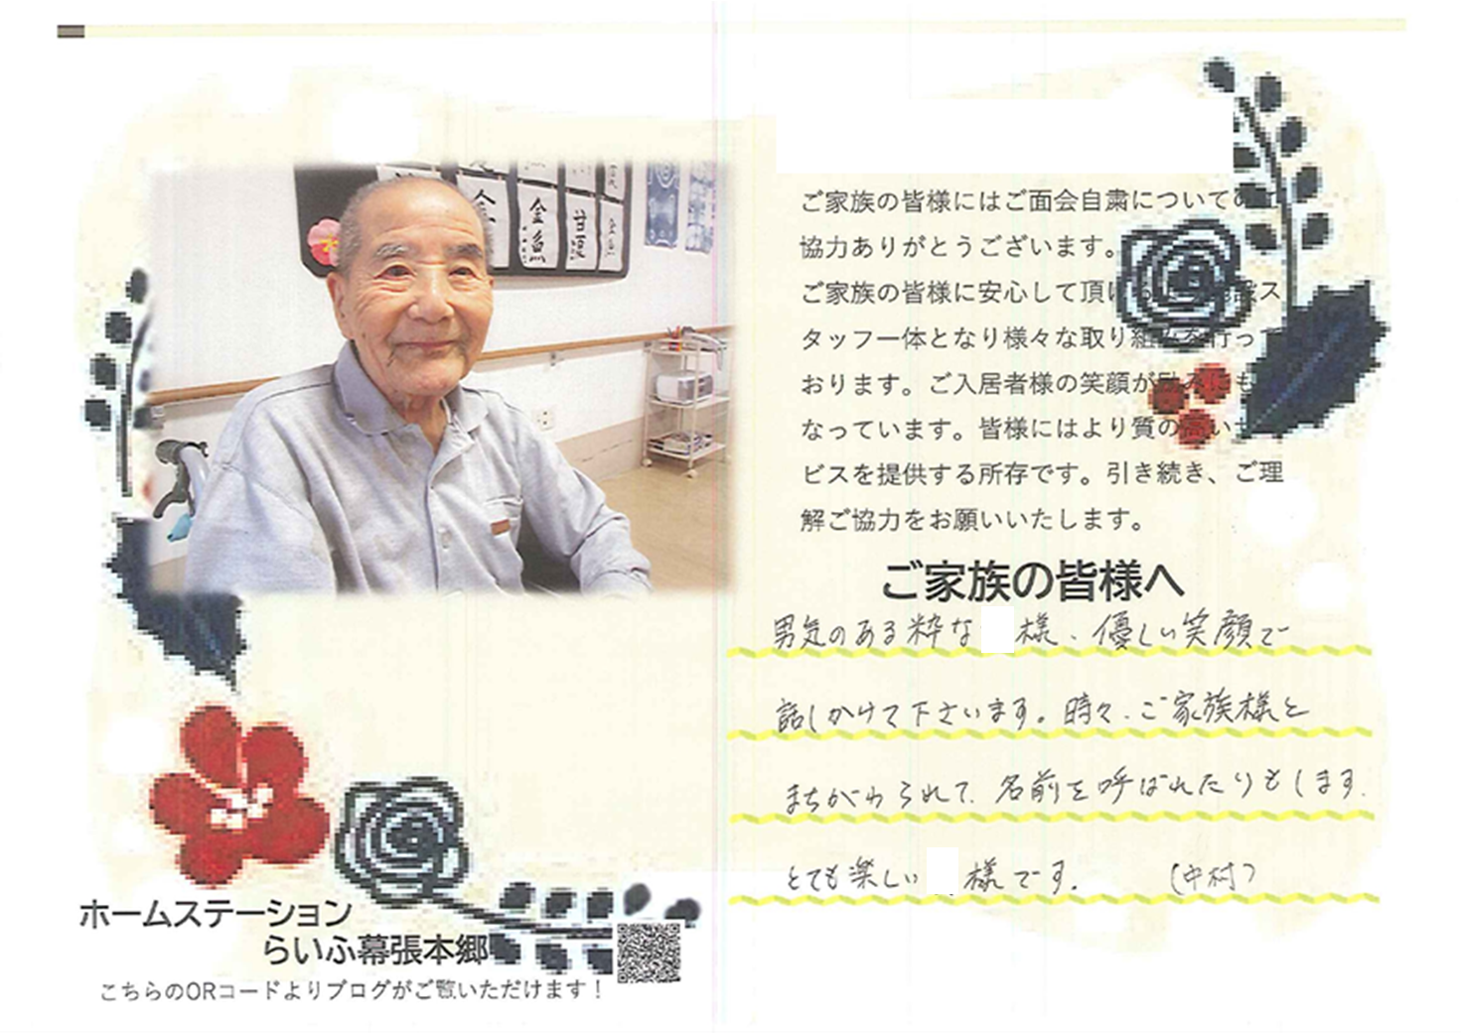 金魚
甘
ご家族の皆様にはご面会自粛についての
協力ありがとうございます。
ご家族の皆様に安心して頂 ス
タッフ一体となり様々な取り組みを行って
おります。ご入居者様の笑顔が励みにも
なっています。皆様にはより質の高いサ
ビスを提供する所存です。引き続き、ご理
解ご協力をお願いいたします。
ご家族の皆様へ
男気のある粋な 様、優しい笑顔で
話しかけて下さいます。時々、ご家族様と
まちがわられて、名前を呼ばれたりもします。
とても楽しい 様です。 (中村)
ホームステーション
らいふ幕張本郷
こちらのQRコードよりブログがご覧いただけます!